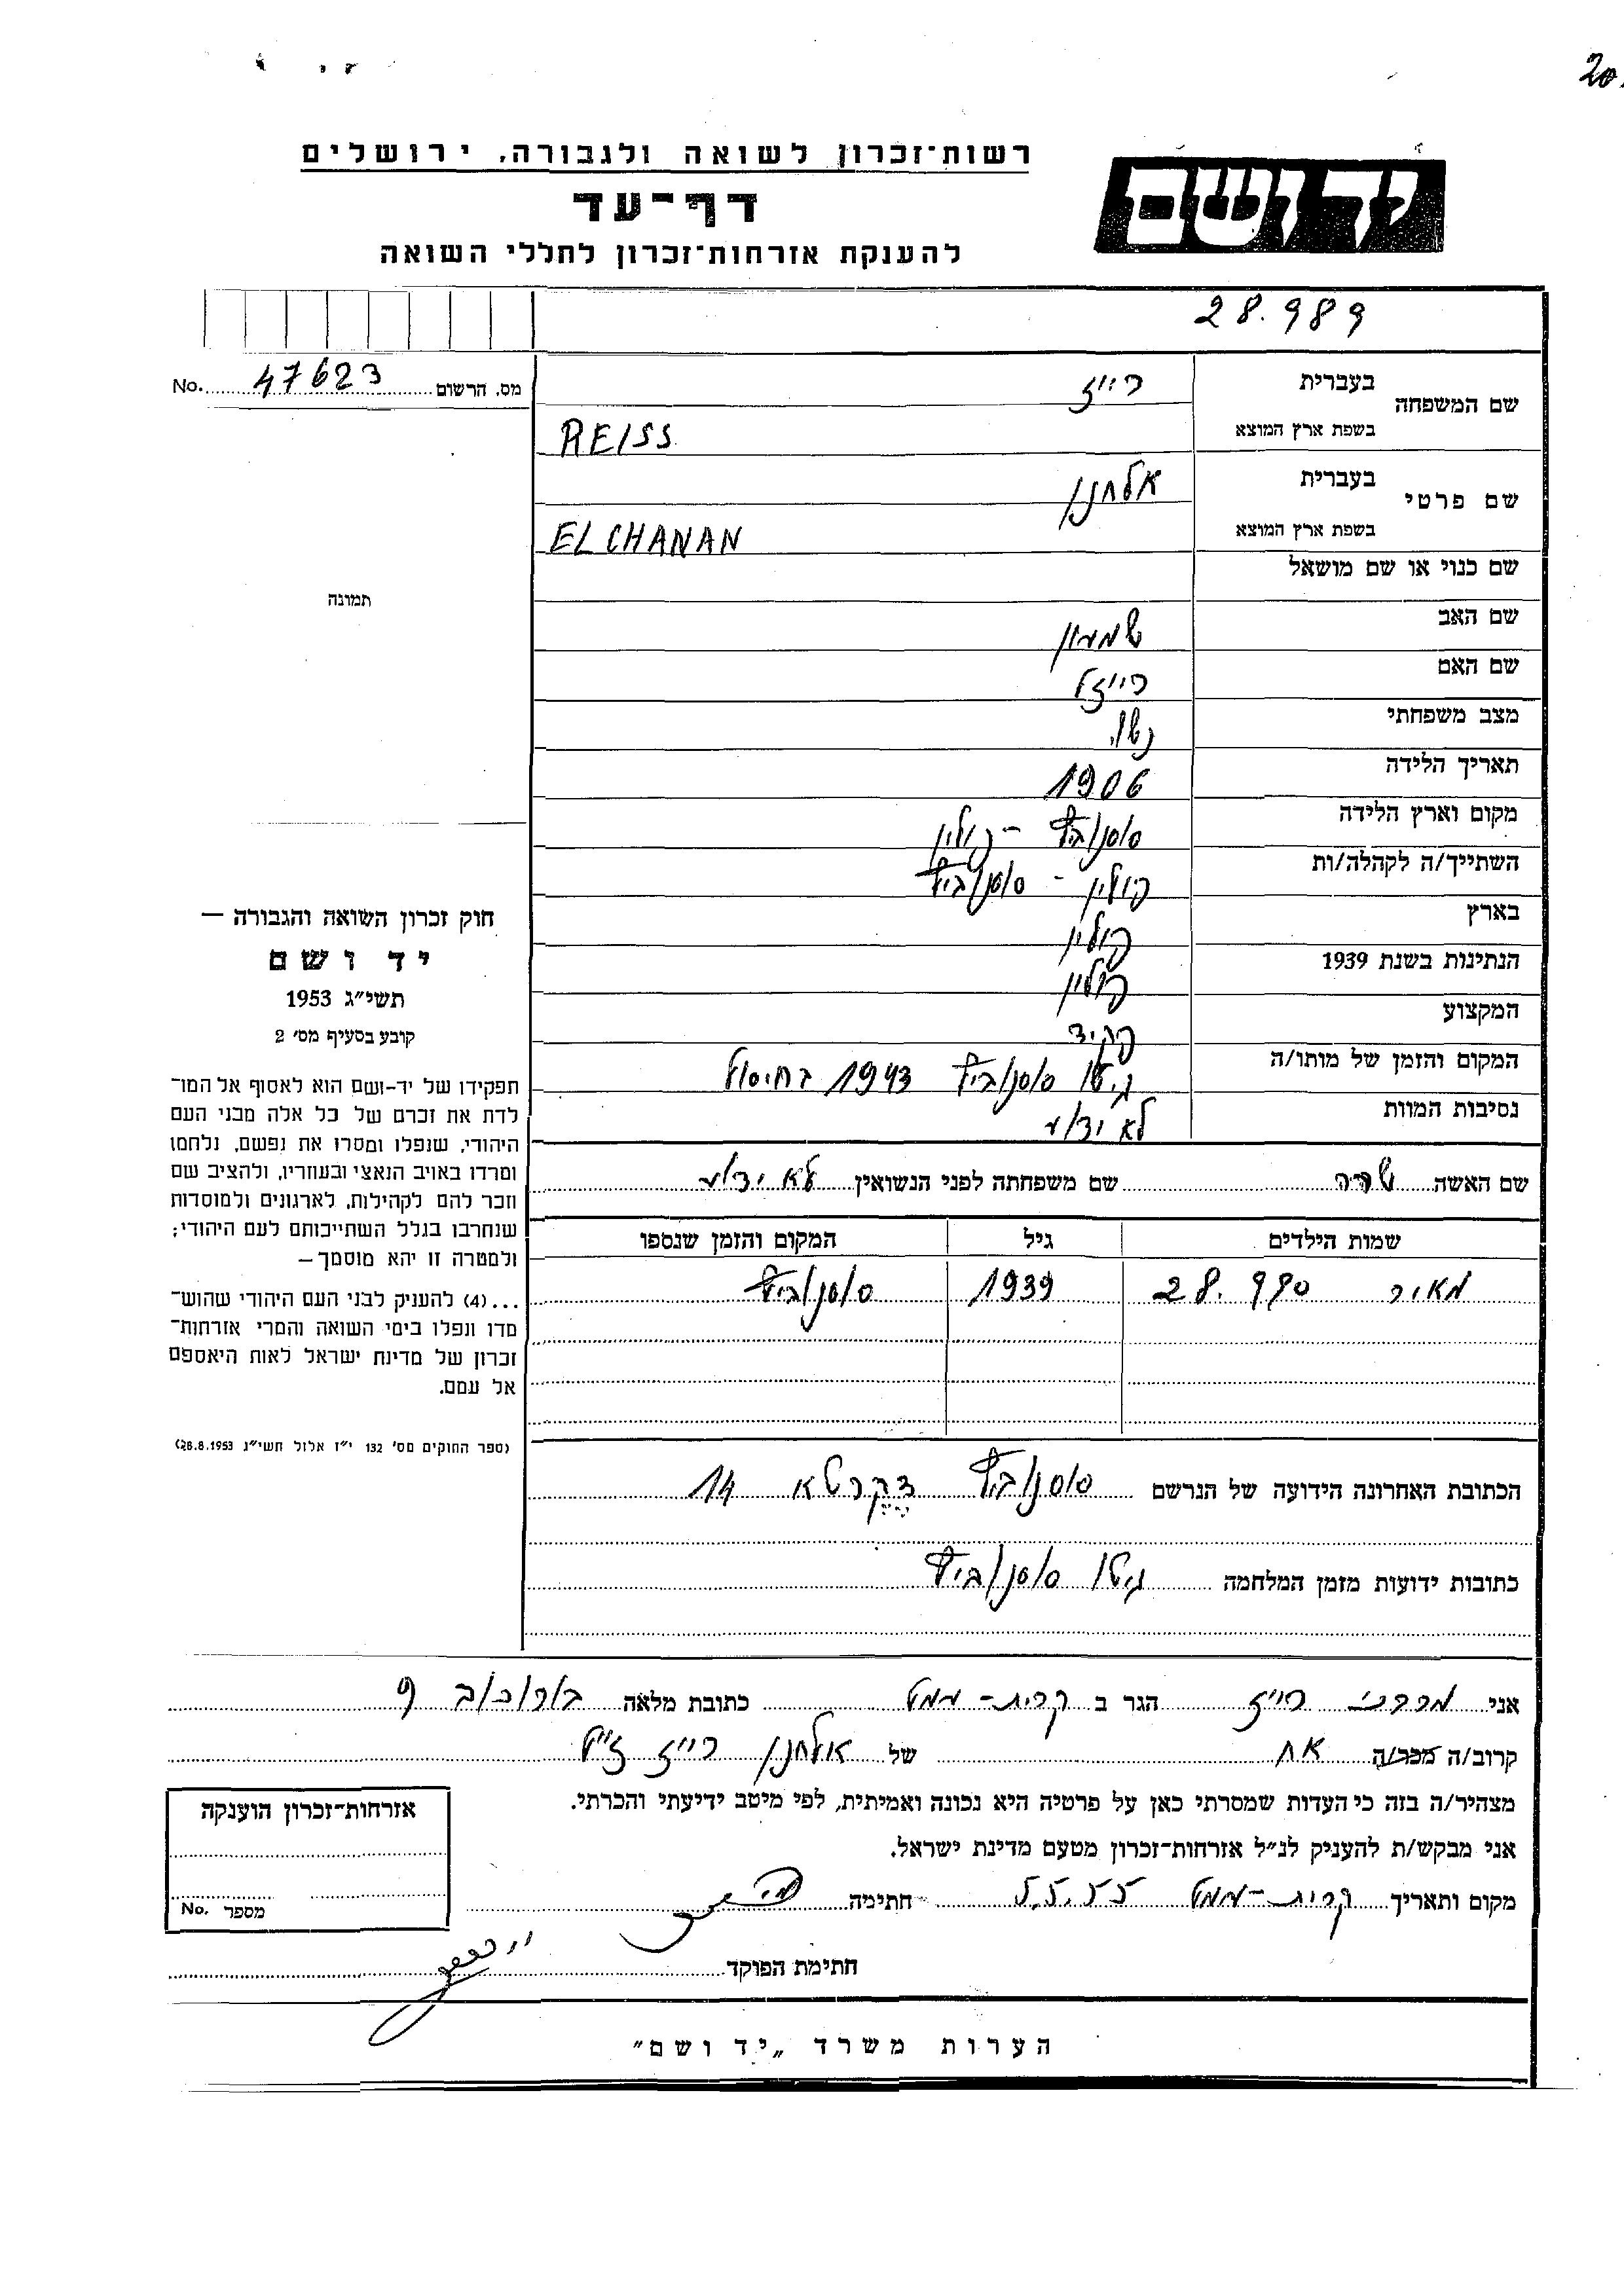 20.
רשות־זכרון לשואה ולגבורה, ירושלים
יד ושם
דף־עד
להענקת אזרחות־זכרון לחללי השואה
28.989
מס. הרשום 47623 No.
שם המשפחה בעברית רייז
בשפת ארץ המוצא REISS
שם פרטי בעברית אלחנן
בשפת ארץ המוצא ELCHANAN
שם כנוי או שם מושאל
שם האב שמעון
שם האם רייזל
מצב משפחתי נשוי
תאריך הלידה 1906
מקום וארץ הלידה סוסנוביץ - פולין
השתייך/ה לקהלה/ות פולין - סוסנוביץ
בארץ פולין
הנתינות בשנת 1939 פולין
המקצוע פקיד
המקום והזמן של מותו/ה גיטו סוסנוביץ 1943 בחיסול
נסיבות המוות לא ידוע
שם האשה שרה שם משפחתה לפני הנשואין לא ידוע
שמות הילדים גיל המקום והזמן שנספו
מאיר 28.990 1939 סוסנוביץ
הכתובת האחרונה הידועה של הנרשם סוסנוביץ דקרטא 14
כתובות ידועות מזמן המלחמה גיטו סוסנוביץ
תמונה
חוק זכרון השואה והגבורה —
יד ושם
תשי״ג 1953
קובע בסעיף מס׳ 2
תפקידו של יד-ושם הוא לאסוף אל המו־
לדת את זכרם של כל אלה מבני העם
היהודי, שנפלו ומסרו את נפשם, נלחמו
ומרדו באויב הנאצי ובעוזריו, ולהציב שם
וזכר להם לקהילות, לארגונים ולמוסדות
שנחרבו בגלל השתייכותם לעם היהודי;
ולמטרה זו יהא מוסמך—
...(4) להעניק לבני העם היהודי שהוש־
מדו ונפלו בימי השואה והמרי אזרחות־
זכרון של מדינת ישראל לאות היאספם
אל עמם.
(ספר החוקים מס׳ 132 י״ז אלול תשי״ג 28.8.1953)
אני מרדכי רייז הגר ב קרית-מוצקין כתובת מלאה
קרוב/ה מכר/ה אח של אלחנן רייז ז״ל
מצהיר/ה בזה כי העדות שמסרתי כאן על פרטיה היא נכונה ואמיתית, לפי מיטב ידיעתי והכרתי.
אני מבקש/ת להעניק לנ״ל אזרחות־זכרון מטעם מדינת ישראל.
מקום ותאריך 5.5.55 חתימה
חתימת הפוקד
אזרחות־זכרון הוענקה
מספר No.
הערות משרד „יד ושם״